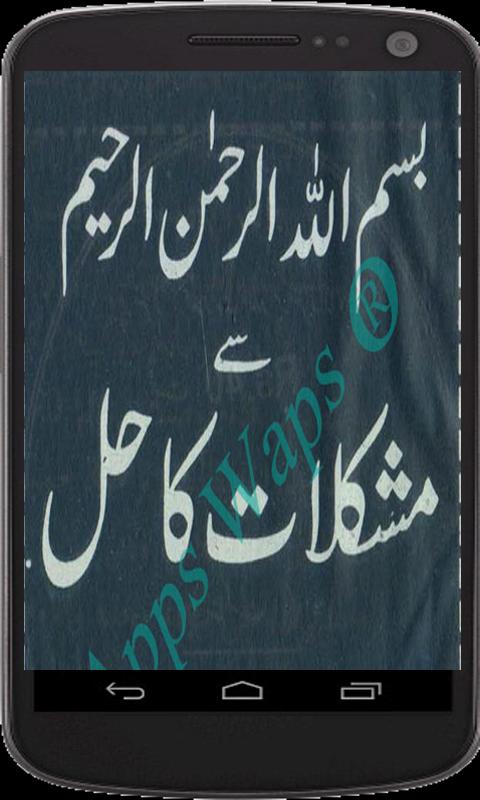 بسم اللہ الرحمٰن الرحیم
سے
مشکلات کا حل
Apps Waps ®